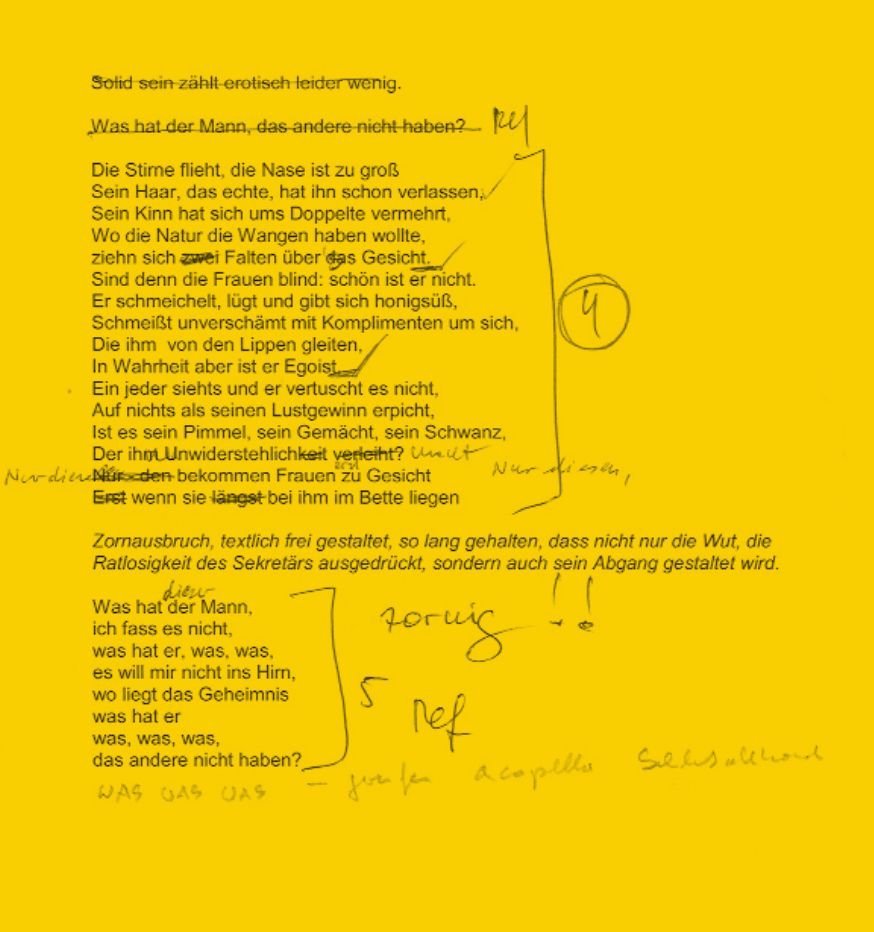 Solid sein zählt erotisch leider wenig.
Was hat der Mann, das andere nicht haben? Ref
Die Stirne flieht, die Nase ist zu groß
Sein Haar, das echte, hat ihn schon verlassen,
Sein Kinn hat sich ums Doppelte vermehrt,
Wo die Natur die Wangen haben wollte,
ziehn sich zwei Falten über das Gesicht.
Sind denn die Frauen blind: schön ist er nicht.
Er schmeichelt, lügt und gibt sich honigsüß,
Schmeißt unverschämt mit Komplimenten um sich,
4
Die ihm von den Lippen gleiten,
In Wahrheit aber ist er Egoist.
Ein jeder siehts und er vertuscht es nicht,
Auf nichts als seinen Lustgewinn erpicht,
Ist es sein Pimmel, sein Gemächt, sein Schwanz,
Der ihm Unwiderstehlichkeit verleiht? macht
erst
Nur diesen Nur den bekommen Frauen zu Gesicht Nur diesen,
Erst wenn sie längst bei ihm im Bette liegen
Zornausbruch, textlich frei gestaltet, so lang gehalten, dass nicht nur die Wut, die
Ratlosigkeit des Sekretärs ausgedrückt, sondern auch sein Abgang gestaltet wird.
dieser
Was hat der Mann,
zornig !!
ich fass es nicht,
was hat er, was, was,
es will mir nicht ins Hirn,
wo liegt das Geheimnis
5
was hat er
Ref
was, was, was,
das andere nicht haben?
WAS WAS WAS – acapella